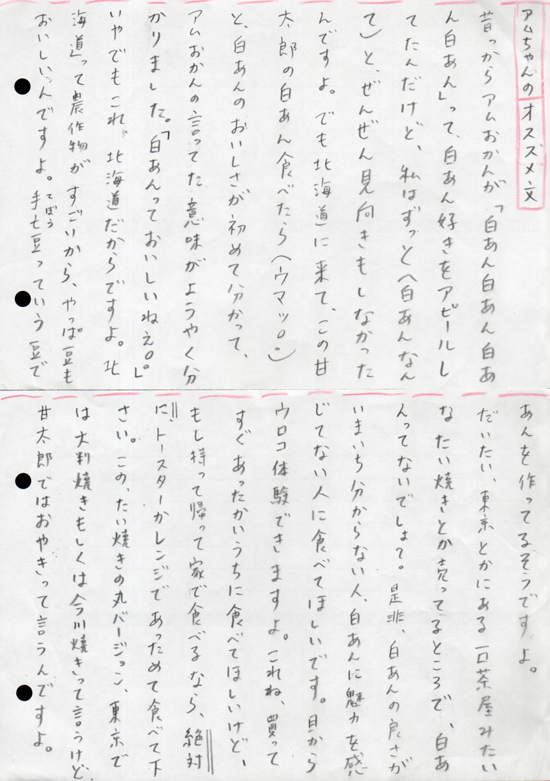 アムちゃんのオススメ文
昔っからアムおかんが「白あん白あん白あ
ん白あん」って、白あん好きをアピールし
てたんだけど、私はずっと(白あんなん
て)と、ぜんぜん見向きもしなかった
んですよ。でも北海道に来て、この甘
太郎の白あん食べたら(ウマッ○。)
と、白あんのおいしさが初めて分かって、
アムおかんの言ってた意味がようやく分
かりました。「白あんっておいしいねぇ○。」
いやでもこれ、北海道だからですよ。北
海道って農作物がすごいから、やっぱ豆も
おいしいんですよ。手亡豆っていう豆で
てぼう
あんを作ってるそうですよ。
だいたい、東京とかにある一口茶屋みたい
なたい焼きとか売ってるところで、白あ
んってないでしょて。是非、白あんの良さが
いまいち分からない人、白あんに魅力を感
じてない人に食べてほしいです。目から
ウロコ体験できますよ。これね、買って
すぐあったかいうちに食べてほしいけど、
もし持って帰って家で食べるなら、絶対
に!トースターかレンジであっためて食べて下
さい。この、たい焼きの丸バージョン、東京で
は大判焼きもしくは今川焼きって言うけど、
甘太郎ではおやきって言うんですよ。